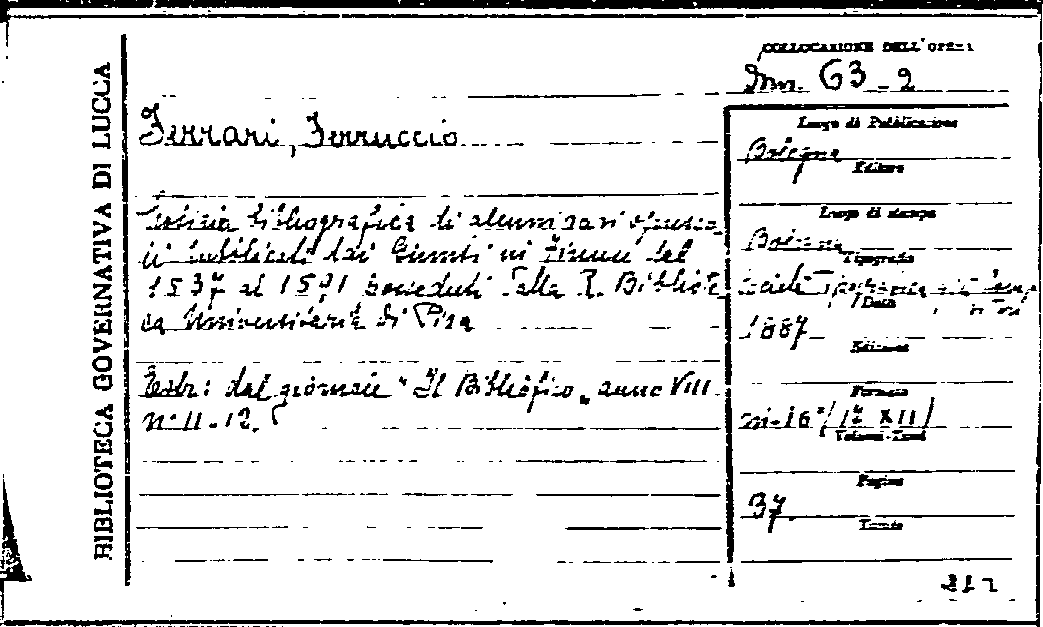 BIBLIOTECA GOVERNATIVA DI LUCCA
COLLOCAZIONE DELL'OPERA
Mm. G3 - 2
Ferrari, Ferruccio
Notizia bibliografica di alcuni rari opusco-
li pubblicati dai Giunti in Firenze dal
1537 al 1591 posseduti dalla R. Bibliote
ca Universitaria di Pisa
Estr: dal giornale "Il Bibliofilo" anno VIII
n° 11-12.
Luogo di Pubblicazione
Bologna
Editore
Luogo di stampa
Bologna
Tipografia
Società Tipografica già Comp
Data
1887
Edizione
Formato
in-16° (17 X 11)
Volumi-Tomi
Pagine
37
Tavole